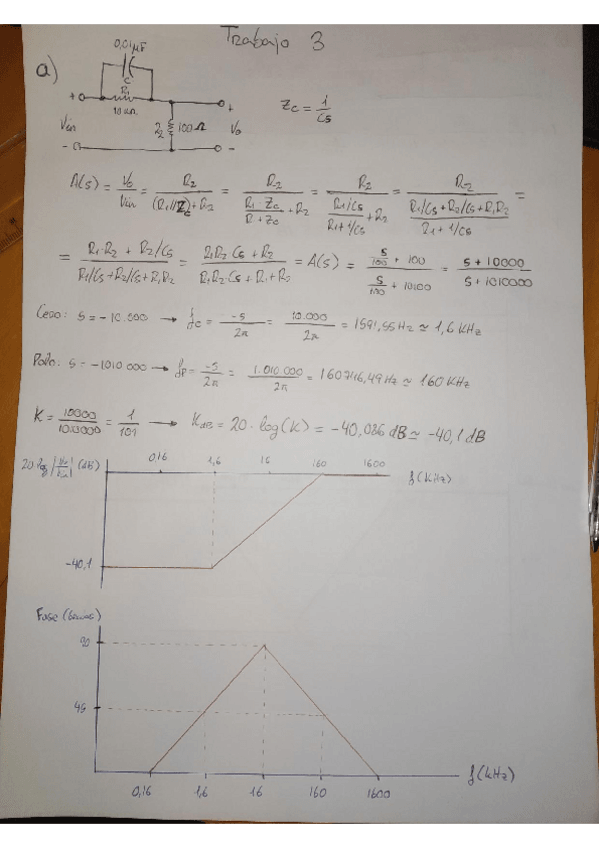 Trabajo 3
a)
0,01μF
C
R1
10 kΩ
+
+
Vin
Z2
100 Ω
Vo
-
-
Zc = 1/Cs
A(s) = Vo/Vin = R2/((R1//Zc)+R2) = R2/((R1·Zc)/(R+Zc)+R2) = R2/((R1/Cs)/(R1+1/Cs)+R2) = R2/((R1/Cs+R2/Cs+R1R2)/(R1+1/Cs)) =
= (R1·R2 + R2/Cs)/(R1/Cs+R2/Cs+R1R2) = (R1R2Cs+R2)/(R1R2·Cs+R1+R2) = A(s) = (s/100 + 100)/(s/100 + 10100) = (s+10000)/(s+1010000)
Cero: s = -10.000 → fc = -s/2π = 10.000/2π = 1591,55 Hz ≃ 1,6 KHz
Polo: s = -1010000 → fp = -s/2π = 1.010.000/2π = 160746,49 Hz ≃ 160 KHz
K = 10000/1010000 = 1/101 → KdB = 20·log(K) = -40,086 dB ≃ -40,1 dB
20 log |Vo/Vin| (dB)
0,16
1,6
16
160
1600
f(KHz)
-40,1
Fase
90
45
0,16
1,6
16
160
1600
f(kHz)